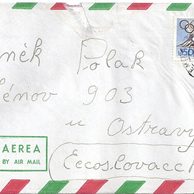 něk Polak
lénov 903
u Ostravy
Cecoslovacc
AEREA
BY AIR MAIL
50